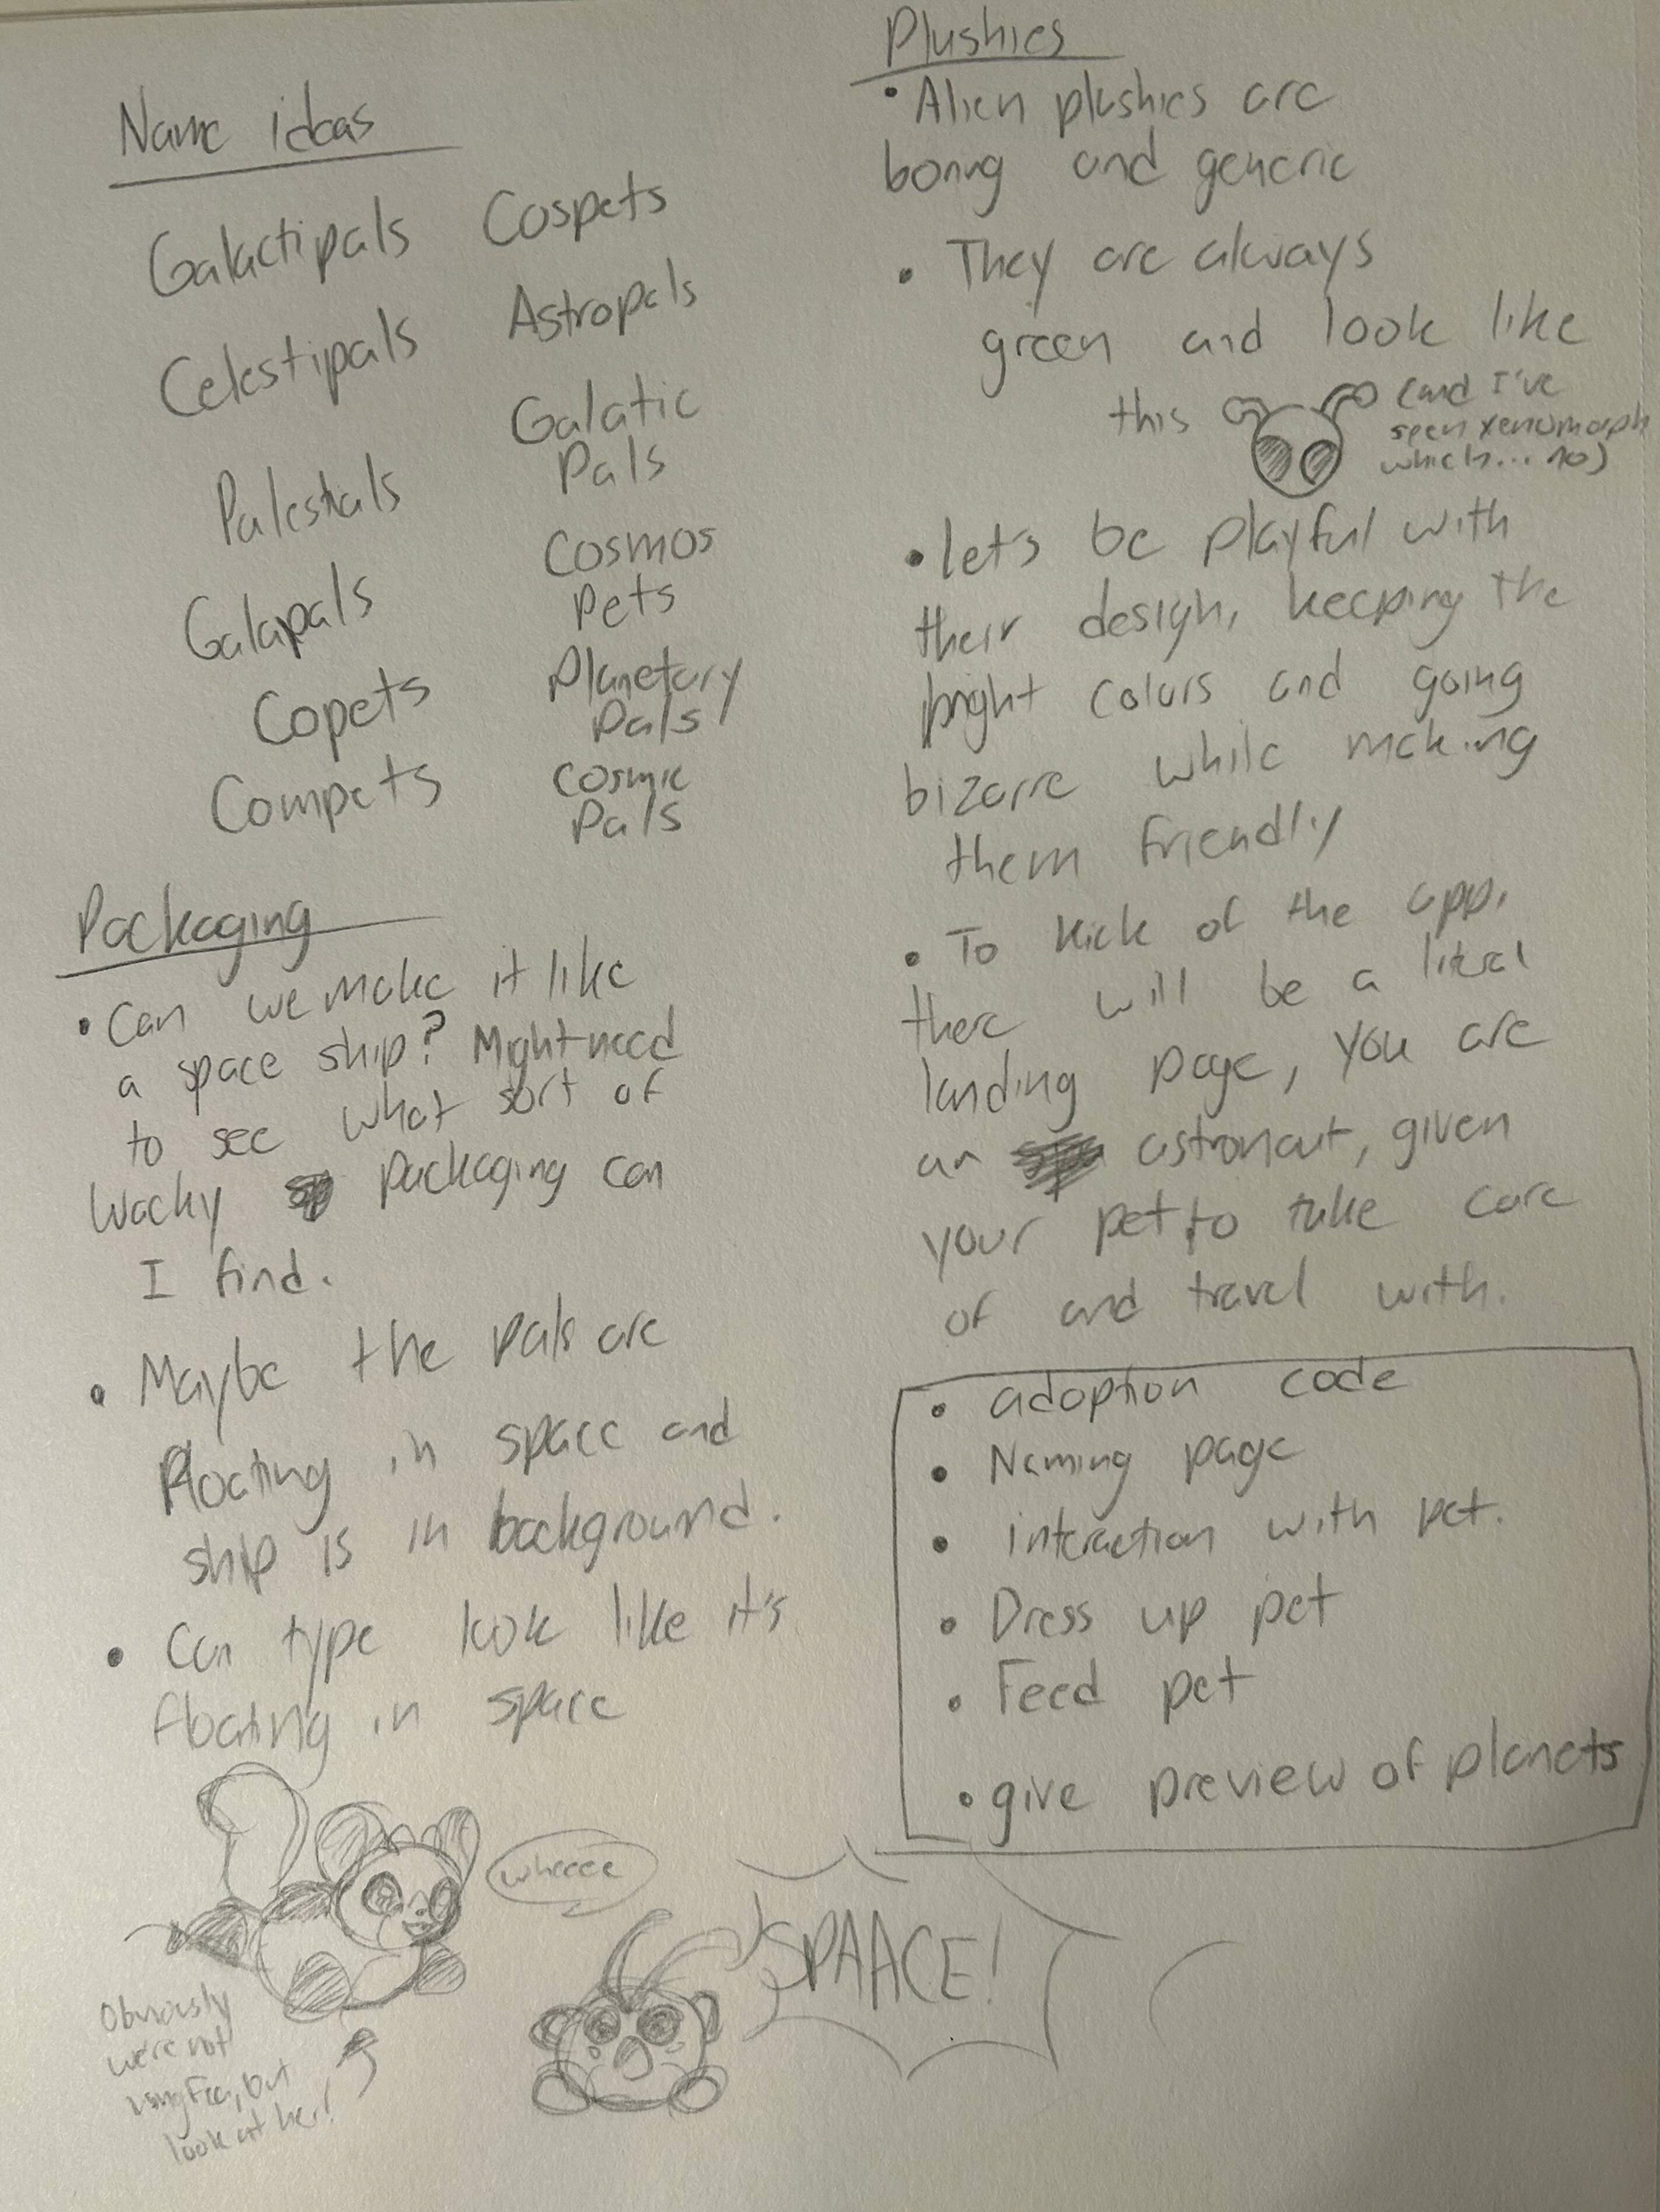 Name ideas
Galactipals
Celestipals
Palestials
Galapals
Copets
Compets
Cospets
Astropals
Galatic
Pals
Cosmos
Pets
Planetary
Pals
Cosmic
Pals
Packaging
• Can we make it like
a space ship? Might need
to see what sort of
wacky packaging can
I find.
• Maybe the pals are
floating in space and
ship is in background.
• Can type look like it's
floating in space
wheeee
Obviously
we're not
using Fea, but
look at her!
SPAACE!
Plushies
• Alien plushies are
boring and generic
• They are always
green and look like
this (and I've
seen xenomorph
which... no)
• let's be playful with
their design, keeping the
bright colors and going
bizarre while making
them friendly
• To kick of the app,
there will be a literal
landing page, you are
an astronaut, given
your pet to take care
of and travel with.
• adoption code
• Naming page
• interaction with pet.
• Dress up pet
• Feed pet
• give preview of planets